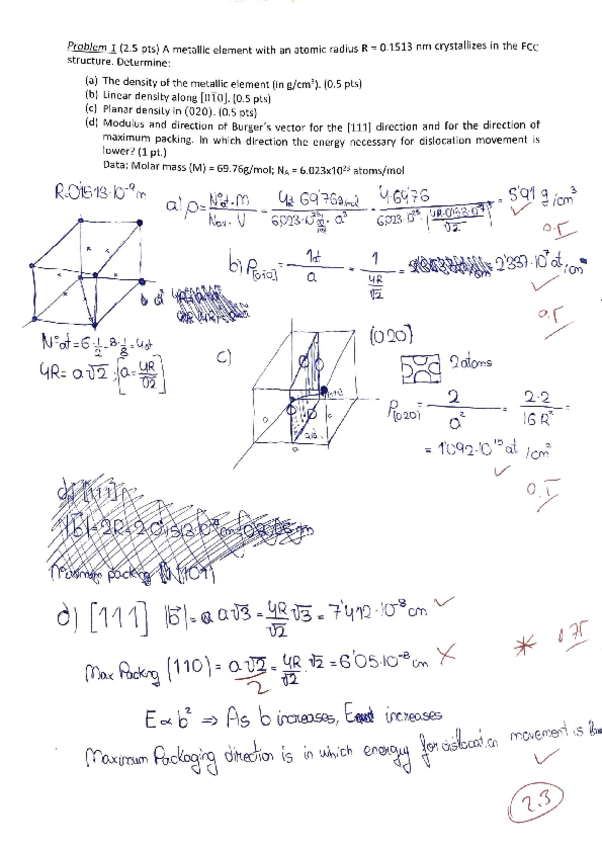 Problem 1 (2.5 pts) A metallic element with an atomic radius R = 0.1513 nm crystallizes in the FCC
structure. Determine:
(a) The density of the metallic element (in g/cm³). (0.5 pts)
(b) Linear density along [010]. (0.5 pts)
(c) Planar density in (020). (0.5 pts)
(d) Modulus and direction of Burger´s vector for the [111] direction and for the direction of
maximum packing. In which direction the energy necessary for dislocation movement is
lower? (1 pt.)
Data: Molar mass (M) = 69.76g/mol; NA = 6.023x10²³ atoms/mol
R=0'1513·10⁻⁹m
a) ρ = Nºat·M / Nav·V = 4at 69'76 g/mol / 6,023·10²³ · a³ = 4·69'76 / 6,023·10²³ (4R / √2)³ = 5'91 g/cm³
0.5
b) ρ[010] = 1at / a = 1 / 4R/√2 = 2'337·10⁷ at/cm
0.5
Nºat = 6·1/2 + 8·1/8 = 4at
4R = a√2 ; [a = 4R/√2]
c)
(020)
2 atoms
ρ(020) = 2 / a² = 2·2 / 16R² =
= 1'092·10¹⁵ at/cm²
0.5
d) [111]
|b| = 2R = 2·0'1513·10⁻⁸
Maximum packing
d) [111] |b| = a√3 = 4R/√2 √3 = 7'412·10⁻⁸ cm
0.75
Max Packing (110) = a√2 / 2 = 4R/√2 · √2 = 6'05·10⁻⁸ cm
E ∝ b² ⇒ As b increases, E increases
Maximum Packaging direction is in which energy for dislocation movement is
2.3